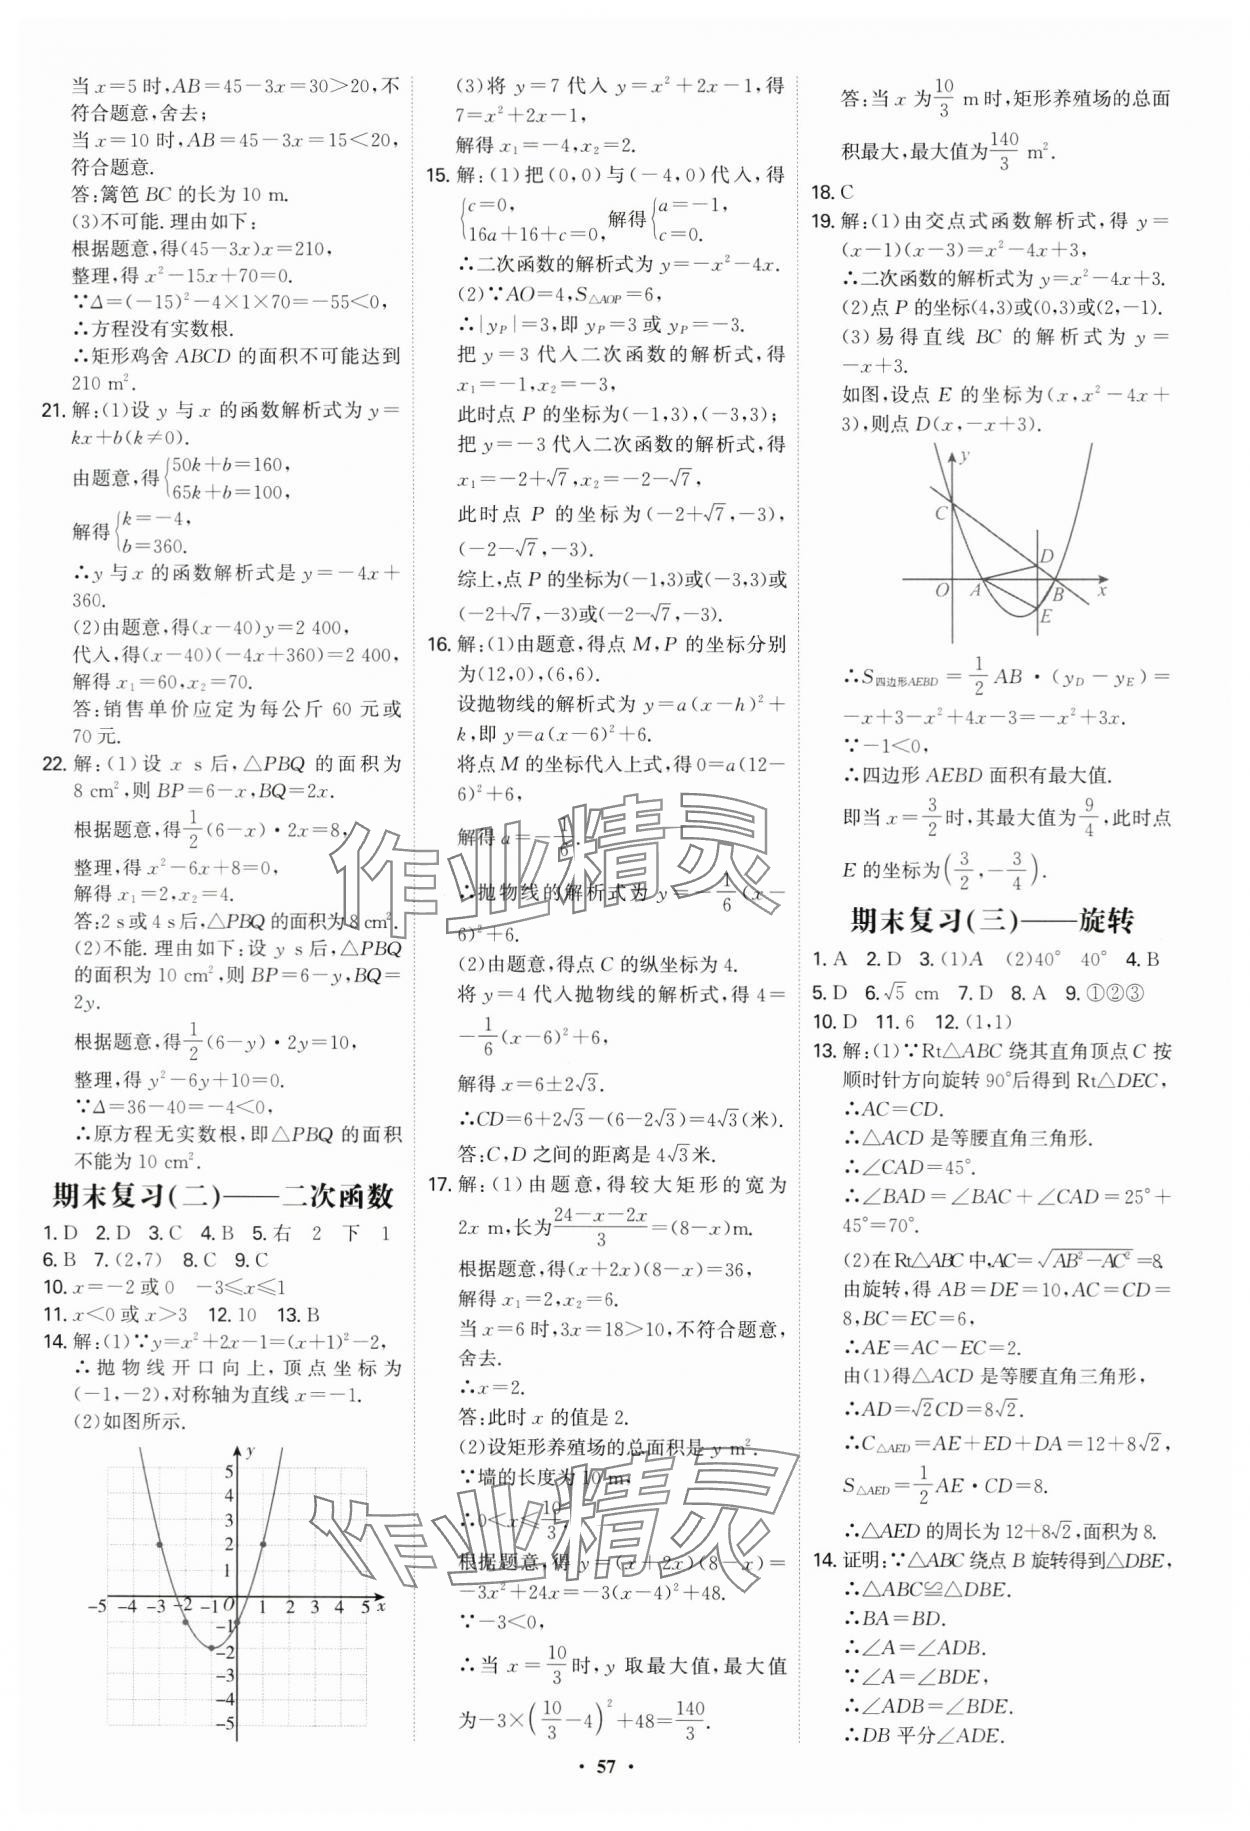 当 x=5 时,AB=45-3x=30>20,不
符合题意,舍去;
当 x=10 时,AB=45-3x=15<20,
符合题意.
答:篱笆 BC 的长为 10 m.
(3)不可能.理由如下:
根据题意,得(45-3x)x=210,
整理,得 x²-15x+70=0.
∵Δ=(-15)²-4×1×70=-55<0,
∴方程没有实数根.
∴矩形鸡舍 ABCD 的面积不可能达到
210 m².
21. 解:(1)设 y 与 x 的函数解析式为 y=
kx+b(k≠0).
由题意,得{50k+b=160, 65k+b=100,
解得{k=-4, b=360.
∴y 与 x 的函数解析式是 y=-4x+
360.
(2)由题意,得(x-40)y=2 400,
代入,得(x-40)(-4x+360)=2 400,
解得 x₁=60,x₂=70.
答:销售单价应定为每公斤 60 元或
70 元.
22. 解:(1)设 x s后,△PBQ 的面积为
8 cm²,则 BP=6-x,BQ=2x.
根据题意,得1/2(6-x)·2x=8,
整理,得 x²-6x+8=0.
解得 x₁=2,x₂=4.
答:2 s或 4 s后,△PBQ 的面积为 8 cm².
(2)不能.理由如下:设 y s后,△PBQ
的面积为 10 cm²,则 BP=6-y,BQ=
2y.
根据题意,得1/2(6-y)·2y=10,
整理,得 y²-6y+10=0.
∵Δ=36-40=-4<0,
∴原方程无实数根,即△PBQ 的面积
不能为 10 cm².
期末复习(二)——二次函数
1. D 2. D 3. C 4. B 5. 右 2 下 1
6. B 7. (2,7) 8. C 9. C
10. x=-2 或 0 -3≤x≤1
11. x<0 或 x>3 12. 10 13. B
14. 解:(1)∵y=x²+2x-1=(x+1)²-2,
∴抛物线开口向上,顶点坐标为
(-1,-2),对称轴为直线 x=-1.
(2)如图所示.
y
5
4
3
2
1
-5 -4 -3 -2 -1 O 1 2 3 4 5 x
-1
-2
-3
-4
-5
(3)将 y=7 代入 y=x²+2x-1,得
7=x²+2x-1,
解得 x₁=-4,x₂=2.
15. 解:(1)把(0,0)与(-4,0)代入,得
{c=0, 16a+16+c=0, 解得{a=-1, c=0.
∴二次函数的解析式为 y=-x²-4x.
(2)∵AO=4,S△AOP=6,
∴|yP|=3,即 yP=3 或 yP=-3.
把 y=3 代入二次函数的解析式,得
x₁=-1,x₂=-3,
此时点 P 的坐标为(-1,3),(-3,3);
把 y=-3 代入二次函数的解析式,得
x₁=-2+√7,x₂=-2-√7,
此时点 P 的坐标为(-2+√7,-3),
(-2-√7,-3).
综上,点 P 的坐标为(-1,3)或(-3,3)或
(-2+√7,-3)或(-2-√7,-3).
16. 解:(1)由题意,得点 M,P 的坐标分别
为(12,0),(6,6).
设抛物线的解析式为 y=a(x-h)²+
k,即 y=a(x-6)²+6.
将点 M 的坐标代入上式,得 0=a(12-
6)²+6,
解得 a=-1/6.
∴抛物线的解析式为 y=-1/6(x-
6)²+6.
(2)由题意,得点 C 的纵坐标为 4.
将 y=4 代入抛物线的解析式,得 4=
-1/6(x-6)²+6,
解得 x=6±2√3.
∴CD=6+2√3-(6-2√3)=4√3(米).
答:C,D 之间的距离是 4√3米.
17. 解:(1)由题意,得较大矩形的宽为
2x m,长为(24-x-2x)/3=(8-x)m.
根据题意,得(x+2x)(8-x)=36,
解得 x₁=2,x₂=6.
当 x=6 时,3x=18>10,不符合题意,
舍去.
∴x=2.
答:此时 x 的值是 2.
(2)设矩形养殖场的总面积是 y m².
∵墙的长度为 10 m,
∴0<x≤10/3.
根据题意,得 y=(x+2x)(8-x)=
-3x²+24x=-3(x-4)²+48.
∵-3<0,
∴当 x=10/3时,y 取最大值,最大值
为-3×(10/3-4)²+48=140/3.
答:当 x 为10/3 m时,矩形养殖场的总面
积最大,最大值为140/3 m².
18. C
19. 解:(1)由交点式函数解析式,得 y=
(x-1)(x-3)=x²-4x+3,
∴二次函数的解析式为 y=x²-4x+3.
(2)点 P 的坐标(4,3)或(0,3)或(2,-1).
(3)易得直线 BC 的解析式为 y=
-x+3.
如图,设点 E 的坐标为(x,x²-4x+
3),则点 D(x,-x+3).
y
C
D
O A B x
E
∴S四边形AEBD=1/2 AB·(yD-yE)=
-x+3-x²+4x-3=-x²+3x.
∵-1<0,
∴四边形 AEBD 面积有最大值.
即当 x=3/2时,其最大值为9/4,此时点
E 的坐标为(3/2,-3/4).
期末复习(三)——旋转
1. A 2. D 3. (1)A (2)40° 40° 4. B
5. D 6. √5 cm 7. D 8. A 9. ①②③
10. D 11. 6 12. (1,1)
13. 解:(1)∵Rt△ABC 绕其直角顶点 C 按
顺时针方向旋转 90°后得到 Rt△DEC,
∴AC=CD.
∴△ACD 是等腰直角三角形.
∴∠CAD=45°.
∴∠BAD=∠BAC+∠CAD=25°+
45°=70°.
(2)在Rt△ABC 中,AC=√(AB²-AC²)=8.
由旋转,得 AB=DE=10,AC=CD=
8,BC=EC=6,
∴AE=AC-EC=2.
由(1)得△ACD 是等腰直角三角形,
∴AD=√2CD=8√2.
∴C△AED=AE+ED+DA=12+8√2,
S△AED=1/2 AE·CD=8.
∴△AED 的周长为 12+8√2,面积为 8.
14. 证明:∵△ABC 绕点 B 旋转得到△DBE,
∴△ABC≌△DBE.
∴BA=BD.
∴∠A=∠ADB.
∵∠A=∠BDE,
∴∠ADB=∠BDE.
∴DB 平分∠ADE.
作业精灵
作业精灵
· 57 ·